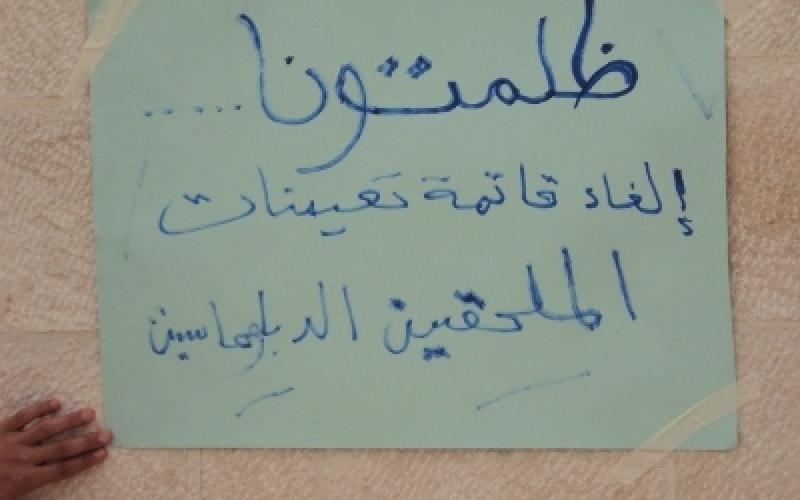 ظلمتونا ......
إلغاء قائمة تعيينات
الملحقين الدبلماسين